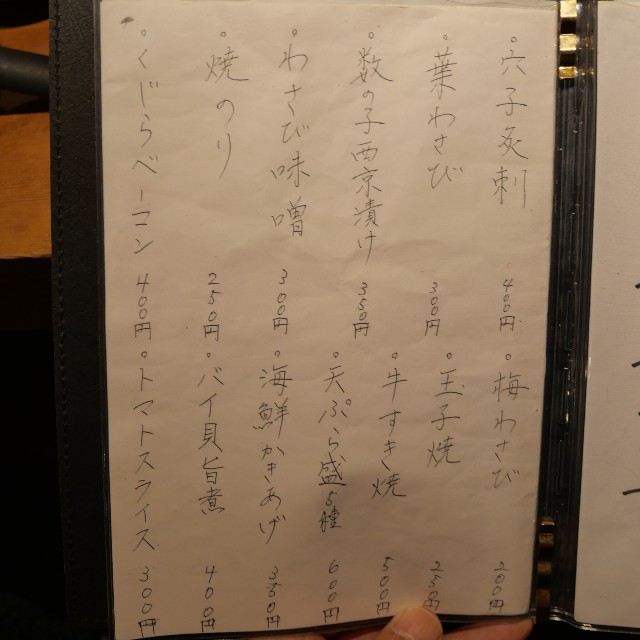 °穴子炙刺 400円
°葉わさび 300円
°数の子西京漬け 350円
°わさび味噌 300円
°焼のり 250円
°くじらベーコン 400円
°梅わさび 200円
°玉子焼 250円
°牛すき焼 500円
°天ぷら盛5種 600円
°海鮮かきあげ 350円
°バイ貝旨煮 400円
°トマトスライス 300円